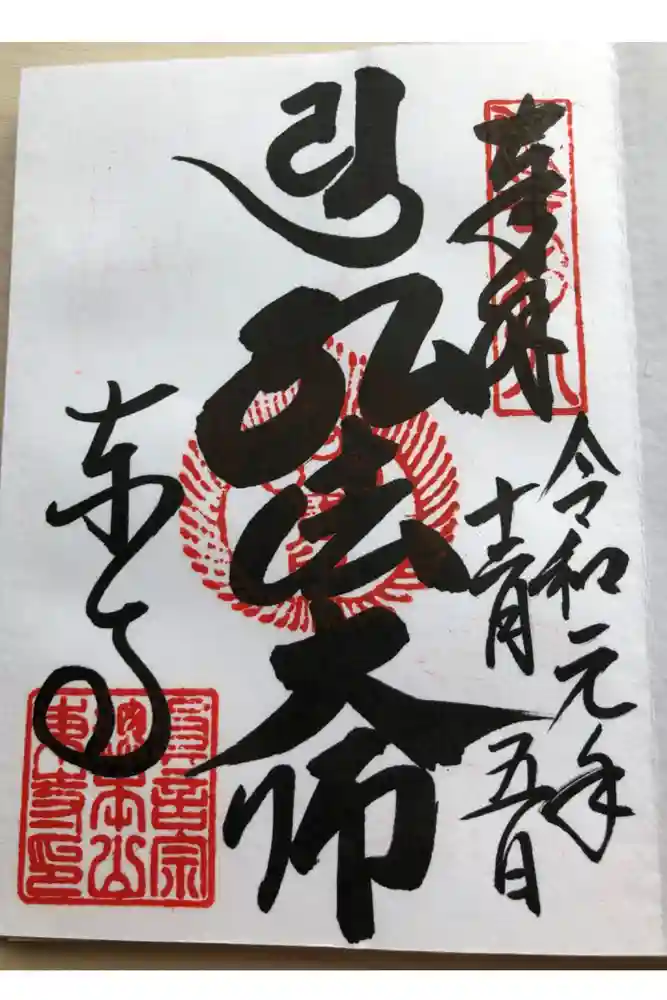 奉拝
令和元年
十二月五日
弘法大師
東寺
真言宗
總本山
東寺印